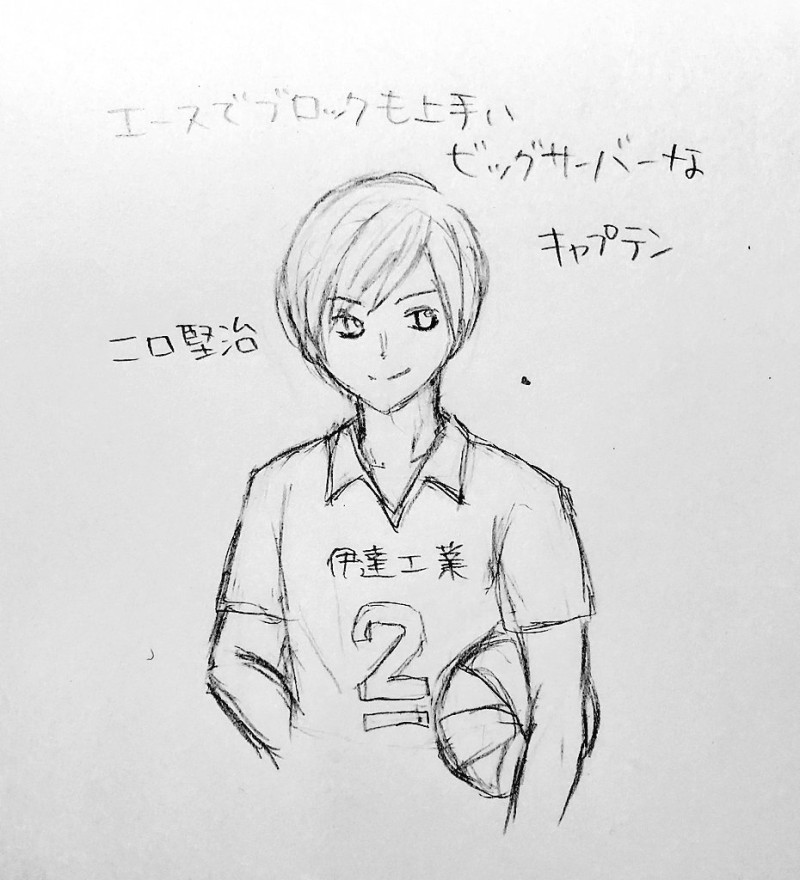 エースでブロックも上手い
ビッグサーバーな
キャプテン
二口堅治
伊達工業
2